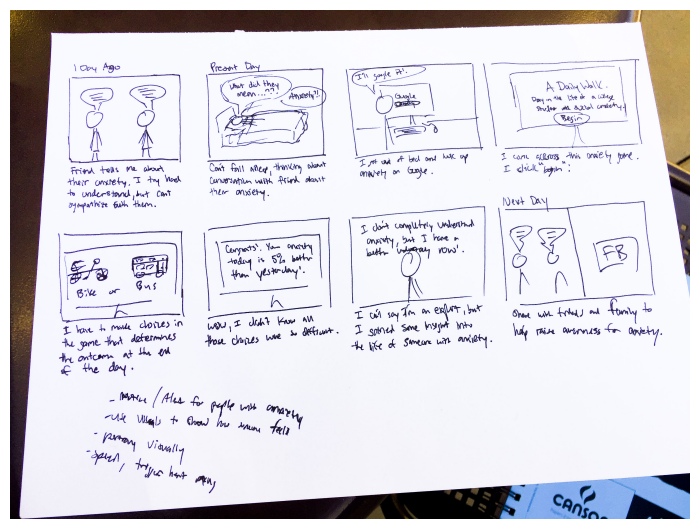 1 Day Ago
Friend tells me about
their anxiety. I try hard
to understand, but can't
sympathize with them.
Present Day
What did they
mean...??
Anxiety?!
Can't fall asleep, thinking about
conversation with friend about
their anxiety.
I'll google it!
Google
I get out of bed and look up
anxiety on Google.
A Daily Walk.
Day in the life of a college
student with social anxiety.
Begin
I came across this anxiety game.
I click "begin".
Bike or Bus
I have to make choices in
the game that determines
the outcome at the end
of the day.
Congrats! Your anxiety
today is 5% better
than yesterday!
Wow, I didn't know all
those choices were so difficult.
I don't completely understand
anxiety, but I have a
better now!
I can't say I'm an expert, but
I gained some insight into
the life of someone with anxiety.
Next Day
FB
Share with friends and family to
help raise awareness for anxiety.
- / for people with anxiety
- use visuals to show how feels
- visually
- speed, trigger heart
CANSO